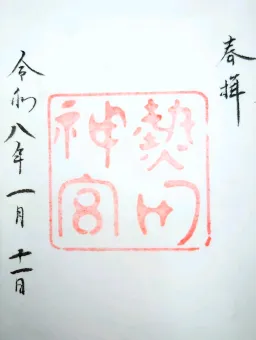 奉拝
熱田
神宮
令和八年一月十一日